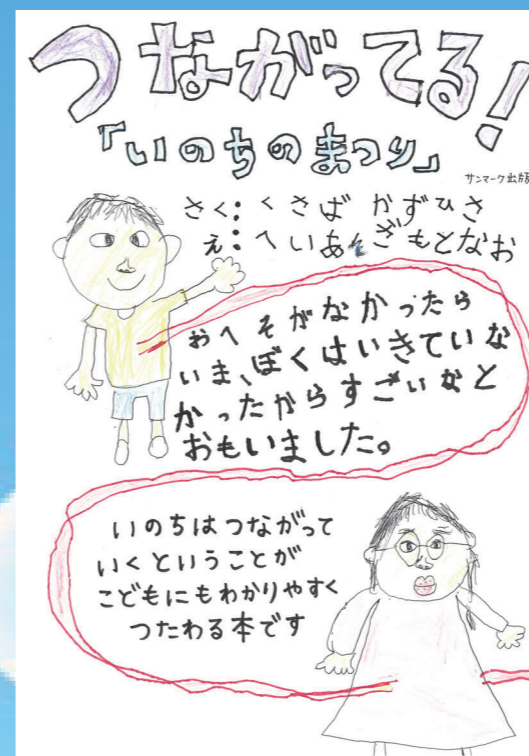 つながってる!
「いのちのまつり」
サンマーク出版
さく:くさば かずひさ
え:へいあんざもとなお
おへそがなかったら
いま、ぼくはいきていな
かったからすごいなと
おもいました。
いのちはつながって
いくということが
こどもにもわかりやすく
つたわる本です